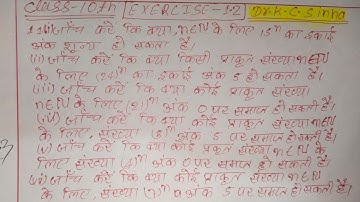 CLASS-10th EXERCISE-1.2 Dr. K.C. Sinha
जाँच करें कि क्या n∈N के लिए 15ⁿ का इकाई
अंक शून्य हो सकता है।
(ii) जाँच करें कि क्या किसी प्राकृत संख्या n∈N
के लिए (24)ⁿ का अंक 5 हो सकता है।
(iii) जाँच करें कि क्या कोई प्राकृत संख्या
n∈N के लिए (21)ⁿ अंक 0 पर समाप्त हो सकती है।
जाँच करें कि क्या कोई प्राकृत संख्या n∈N
के लिए संख्या (8)ⁿ अंक 5 पर समाप्त हो सकती है।
(v) जाँच करें कि क्या कोई प्राकृत संख्या n∈N के
लिए संख्या (4)ⁿ अंक 0 पर समाप्त हो सकती है।
(vi) जाँच करें कि क्या कोई प्राकृत संख्या n∈N
के लिए, संख्या (7)ⁿ अंक 5 पर समाप्त हो सकती है।